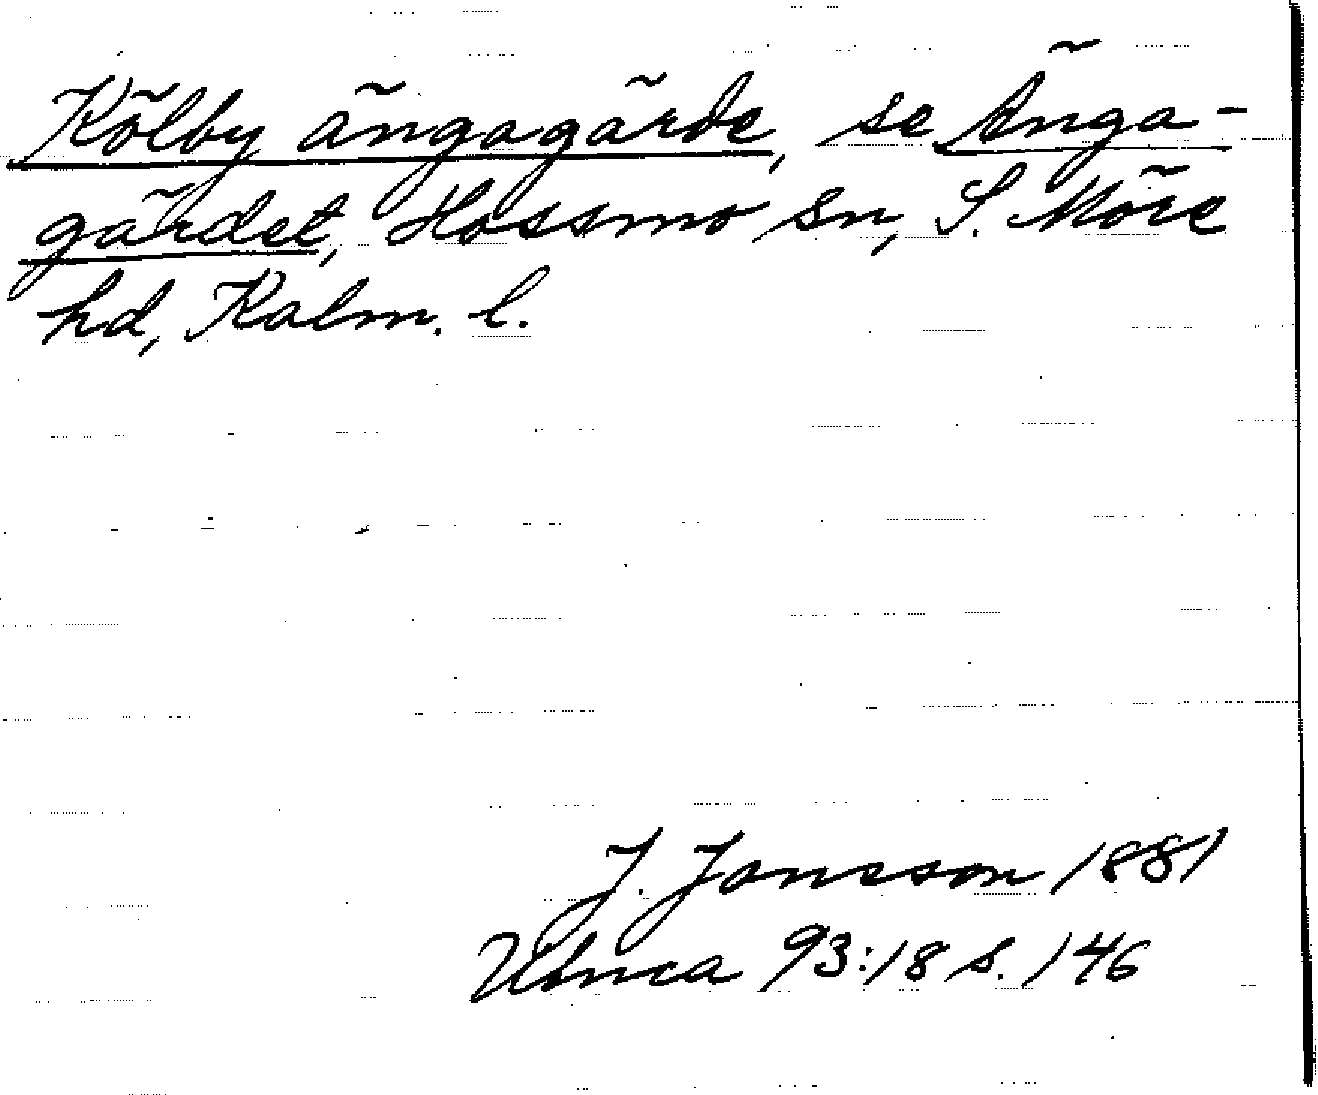 Kölby ängagärde, se Änga-
gärdet, Hossmo sn, S. Möre
hd, Kalm. l.
J. Jonsson 1881
93:18 s. 146